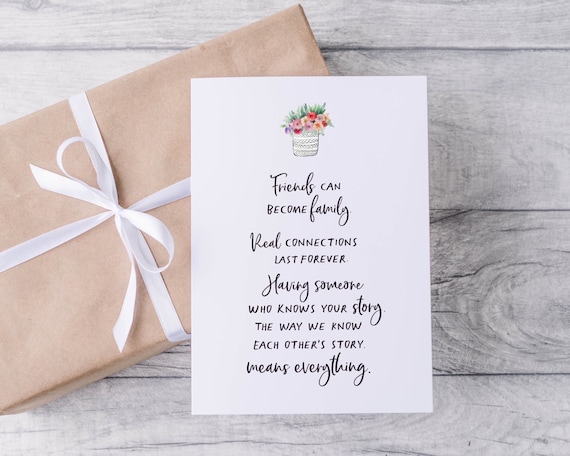 Friends CAN
BECOME family.
Real CONNECTIONS
LAST FOREVER.
Having someone
WHO KNOWS YOUR story.
THE WAY WE KNOW
EACH OTHER'S STORY.
means everything.